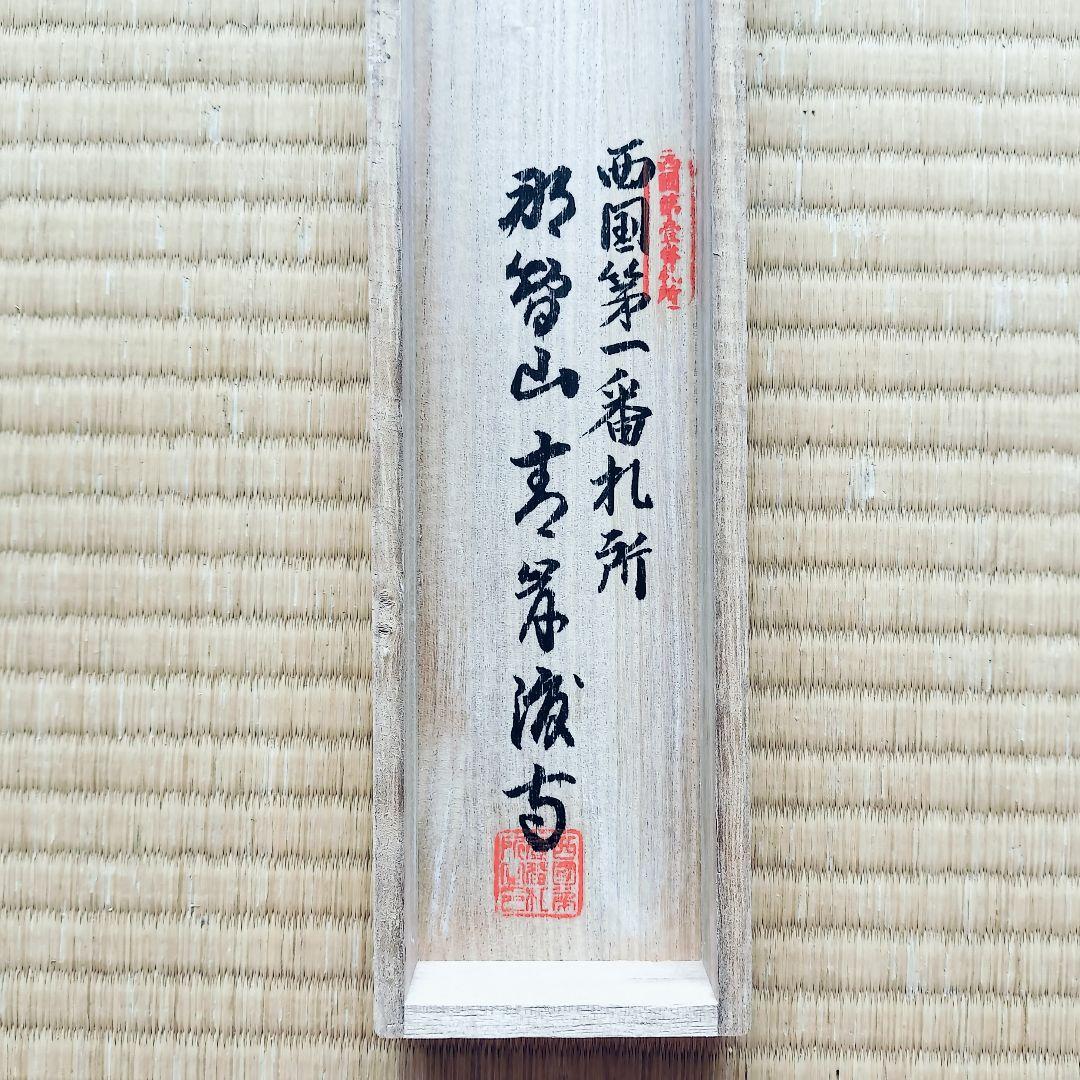 西國第壹番札所
西国第一番札所
那智山青岸渡寺